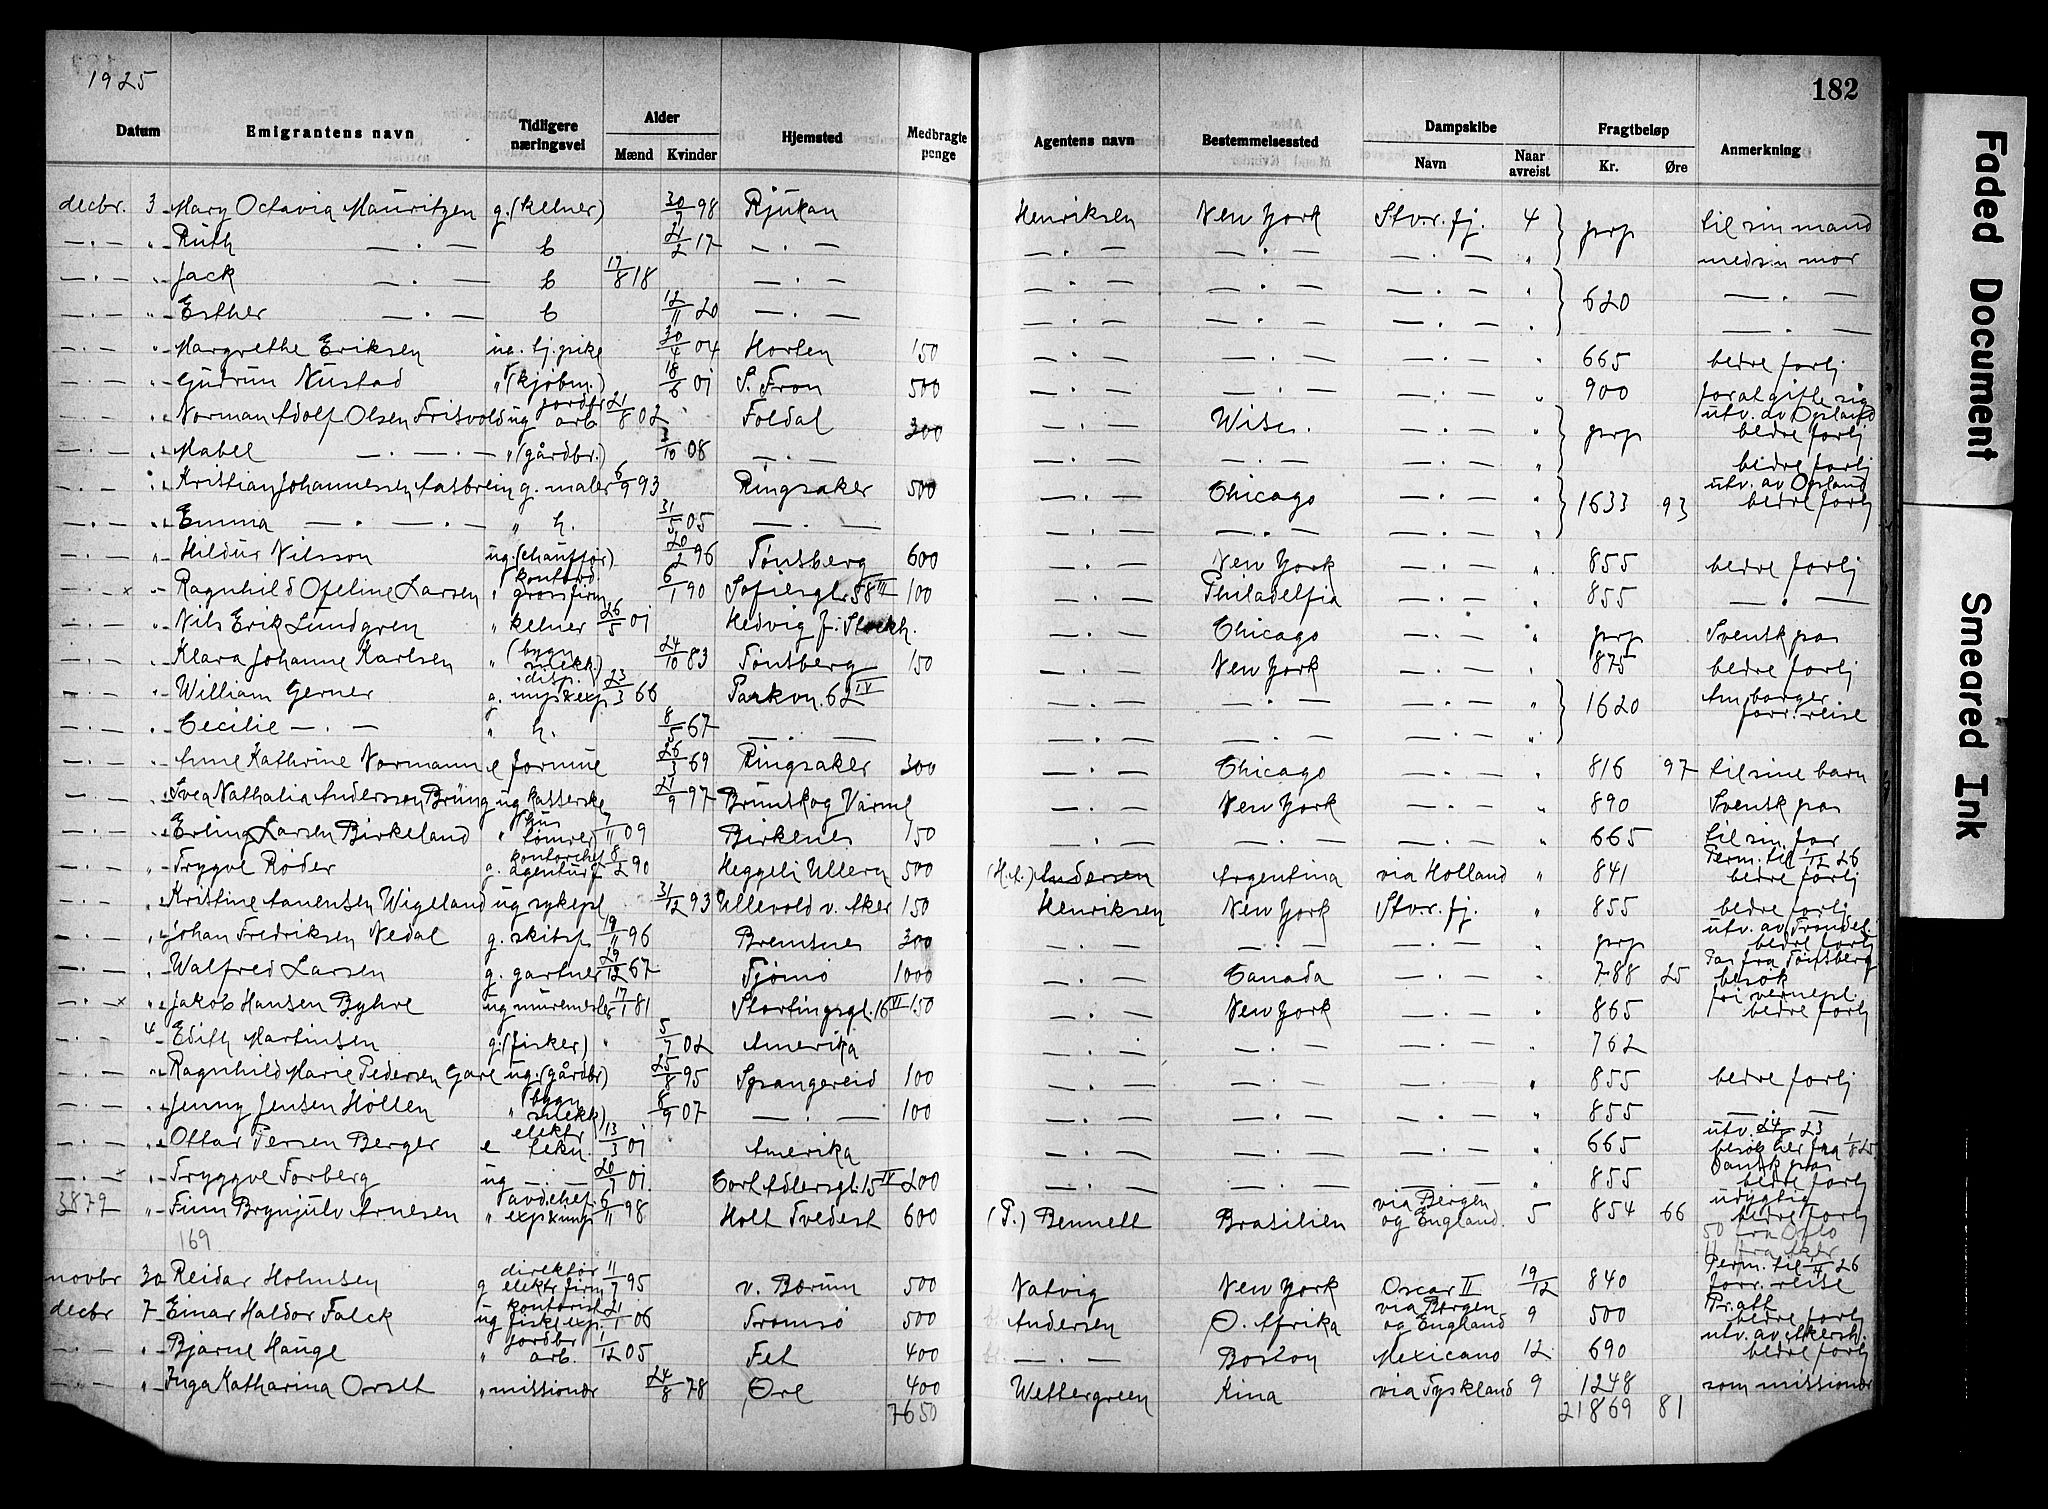 1925
182
Datum Emigrantens navn Tidligere næringsvei Alder Mænd Kvinder Hjemsted Medbragte penge Agentens navn Bestemmelsessted Dampskibe Navn Naar avreist Fragtbeløp Kr. Øre Anmerkning
decbr. 3 Mary Octavia Mauritzen g. (kelner) 30/7 98 Rjukan Henriksen New York Stv.r.fj. 4 prp til sin mand
— . — " Ruth — . — b 21/2 17 — . — — . — — . — — . — " med sin mor
— . — " Jack — . — b 17/8 18 — . — — . — — . — — . — " 620 — . —
— . — " Esther — . — b 12/11 20 — . — — . — — . — — . — " — . —
— . — " Margrethe Eriksen ug. tj.pike 30/4 04 Horten 150 — . — — . — — . — " 665 bedre fortj
— . — " Gudrun Nustad " (kjøbm.) 18/6 01 S. Fron 500 — . — — . — — . — " 900 for at gifte sig
— . — " Norman Adolf Olsen Fritsvold ug jordbr arb 21/8 02 Foldal 300 — . — Wisc. — . — " prp utv. av Opland bedre fortj
— . — " Mabel — . — . — " (gårdbr.) /10 08 — . — — . — — . — — . — " bedre fortj
— . — " Kristian Johannessen Aasbrein g. maler 6/9 93 Ringsaker 500 — . — Chicago — . — " 1633 93 utv. av Opland bedre fortj
— . — " Emma — . — . — " h. 31/5 05 — . — — . — — . — — . — "
— . — " Hildur Nilsson ug. (chauffør) 20/2 96 Tønsberg 600 — . — New York — . — " 855 bedre fortj
— . — x " Ragnhild Ofeline Larsen " kontord. grossfirm 6/1 90 Sofiesgt. 58 III 100 — . — Philadelfia — . — " 855 — . —
— . — " Nils Erik Lundgren " kelner 26/5 01 Hedvig f. Stockh. — . — Chicago — . — " prp Svensk pas
— . — " Klara Johanne Karlsen " (bygn snekk.) 24/10 83 Tønsberg 150 — . — New York — . — " 875 bedre fortj
— . — " William Gerner g. disp. myskexp 23/3 66 Parkvn. 62 IV — . — — . — — . — " 1620 Am borger forr. reise
— . — " Cecilie — . — " h. 8/5 67 — . — — . — — . — — . — "
— . — " Anne Kathrine Normann e formue 26/3 69 Ringsaker 300 — . — Chicago — . — " 816 97 til sine barn
— . — " Svea Nathalia Andersson Brüng ug kasserske 21/9 97 Brunskog Värml — . — New York — . — " 890 Svensk pas
— . — " Erling Larsen Birkeland " hus tømrer /11 09 Birkenes 150 — . — — . — — . — " 665 til sin far
— . — " Trygve Røder g. kontorchef agentur f 8/2 90 Heggeli Ullern 500 (H.A.) Andersen Argentina via Holland " 841 Perm. til 1/12 26 bedre fortj
— . — " Kristine Aanensen Wigeland ug sykepl 31/12 93 Ullevold v. Aker 150 Henriksen New York Stv.r.fj. " 855 bedre fortj
— . — " Johan Fredriksen Nedal g. skibsf 19/11 96 Bremsnes 300 — . — — . — — . — " prp utv. av Trøndel. bedre fortj
— . — " Walfred Larsen g. gartner 29/12 67 Tjømø 1000 — . — Canada — . — " 788 25 Pas fra Tønsberg besøk
— . — x " Jakob Hansen Byhre ug murmester 17/6 81 Stortingsgt. 16 VI 150 — . — New York — . — " 865 fri vernepl. bedre fortj
— . — 4 Edith Martinsen g. (fisker) 5/7 02 Amerika — . — — . — — . — " 762
— . — " Ragnhild Marie Pedersen Gare ug. (gårdbr) 25/8 95 Spangereid 100 — . — — . — — . — " 855 bedre fortj
— . — " Jenny Jensen Hollen " (bygn snekk) 8/9 07 — . — 100 — . — — . — — . — " 855 — . —
— . — " Ottar Persen Berger e elektr tekn. 13/3 01 Amerika — . — — . — — . — " 665 utv. 24/4 23 besøk her fra 1/8 25
— . — x " Tryggve Torberg ug — . — 20/7 01 Carl Adlersgt. 15 IV 200 — . — — . — — . — " 855 Dansk pas bedre fortj
3879 " Finn Brynjulv Arnesen " avd.chef expskuips 6/11 98 Holt Tvedest 600 (T.) Bennett Brasilien via Bergen og England. 5 854 66 udygtig bedre fortj
169 50 fra Oslo
11 fra Aker
novbr 30 Reidar Holmsen g direktør elektr firm 11/7 95 v. Bærum 500 Natvig New York Oscar II 19/12 840 Perm. til 1/4 26 forr. reise
decbr 7 Einar Haldor Falck ug kontorist fiskeexp. 21/1 06 Tromsø 500 Andersen Ø. Afrika via Bergen og England 9 500 Pr. att bedre fortj
— . — " Bjarne Hauge " jordbr arb. 1/12 05 Fet 400 — . — Boston Mexicano 12 690 utv. av Akersh. bedre fortj
— . — " Inga Katharina Orset " missionær 24/8 78 Øre 400 Wettergreen Kina via Tyskland 9 1248 som missionær
7650 21869 81
Faded Document
Smeared Ink